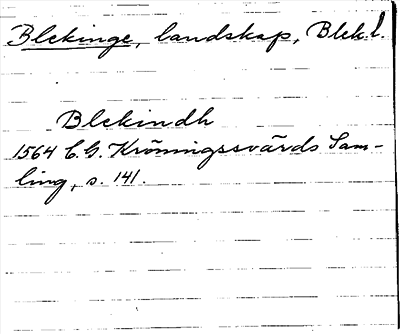 Blekinge, landskap, Blek.l.
Blekindh
1564 C.G. Kröningssvärds Sam-
ling, s. 141.